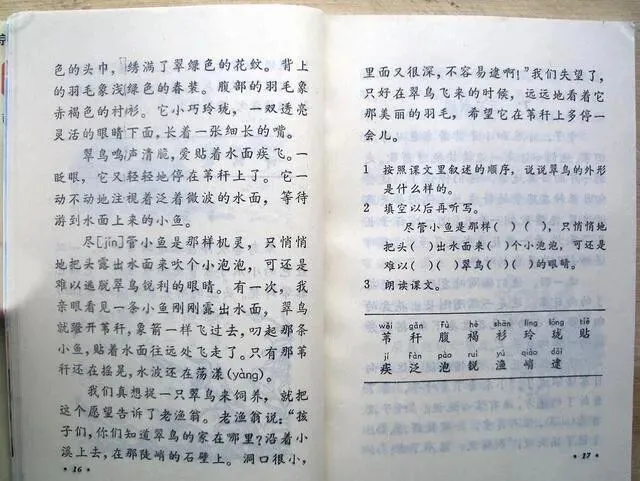 色的头巾，绣满了翠绿色的花纹。背上
的羽毛象浅绿色的春装。腹部的羽毛象
赤褐色的衬衫。它小巧玲珑，一双透亮
灵活的眼睛下面，长着一张细长的嘴。
翠鸟鸣声清脆，爱贴着水面疾飞。一
眨眼，它又轻轻地停在苇秆上了。它一
动不动地注视着泛着微波的水面，等待
游到水面上来的小鱼。
尽[jǐn]管小鱼是那样机灵，只悄悄
地把头露出水面来吹个小泡泡，可还是
难以逃脱翠鸟锐利的眼睛。有一次，我
亲眼看见一条小鱼刚刚露出水面，翠鸟
就蹬开苇秆，象箭一样飞过去，叼起那条
小鱼，贴着水面往远处飞走了。只有那苇
秆还在摇晃，水波还在荡漾(yàng)。
我们真想捉一只翠鸟来饲养，就把
这个愿望告诉了老渔翁。老渔翁说：“孩
子们，你们知道翠鸟的家在哪里？沿着小
溪上去，在那陡峭的石壁上。洞口很小，
·16·
里面又很深，不容易逮啊！”我们失望了，
只好在翠鸟飞来的时候，远远地看着它
那美丽的羽毛，希望它在苇秆上多停一
会儿。
1 按照课文里叙述的顺序，说说翠鸟的外形
是什么样的。
2 填空以后再听写。
尽管小鱼是那样( )( )，只悄悄地
把头( )出水面来( )个小泡泡，可还是
难以( )( )翠鸟( )( )的眼睛。
3 朗读课文。
wěi gǎn fù hè shān líng lóng tiē
苇 秆 腹 褐 衫 玲 珑 贴
jí fàn pào ruì yú qiào dǎi
疾 泛 泡 锐 渔 峭 逮
·17·